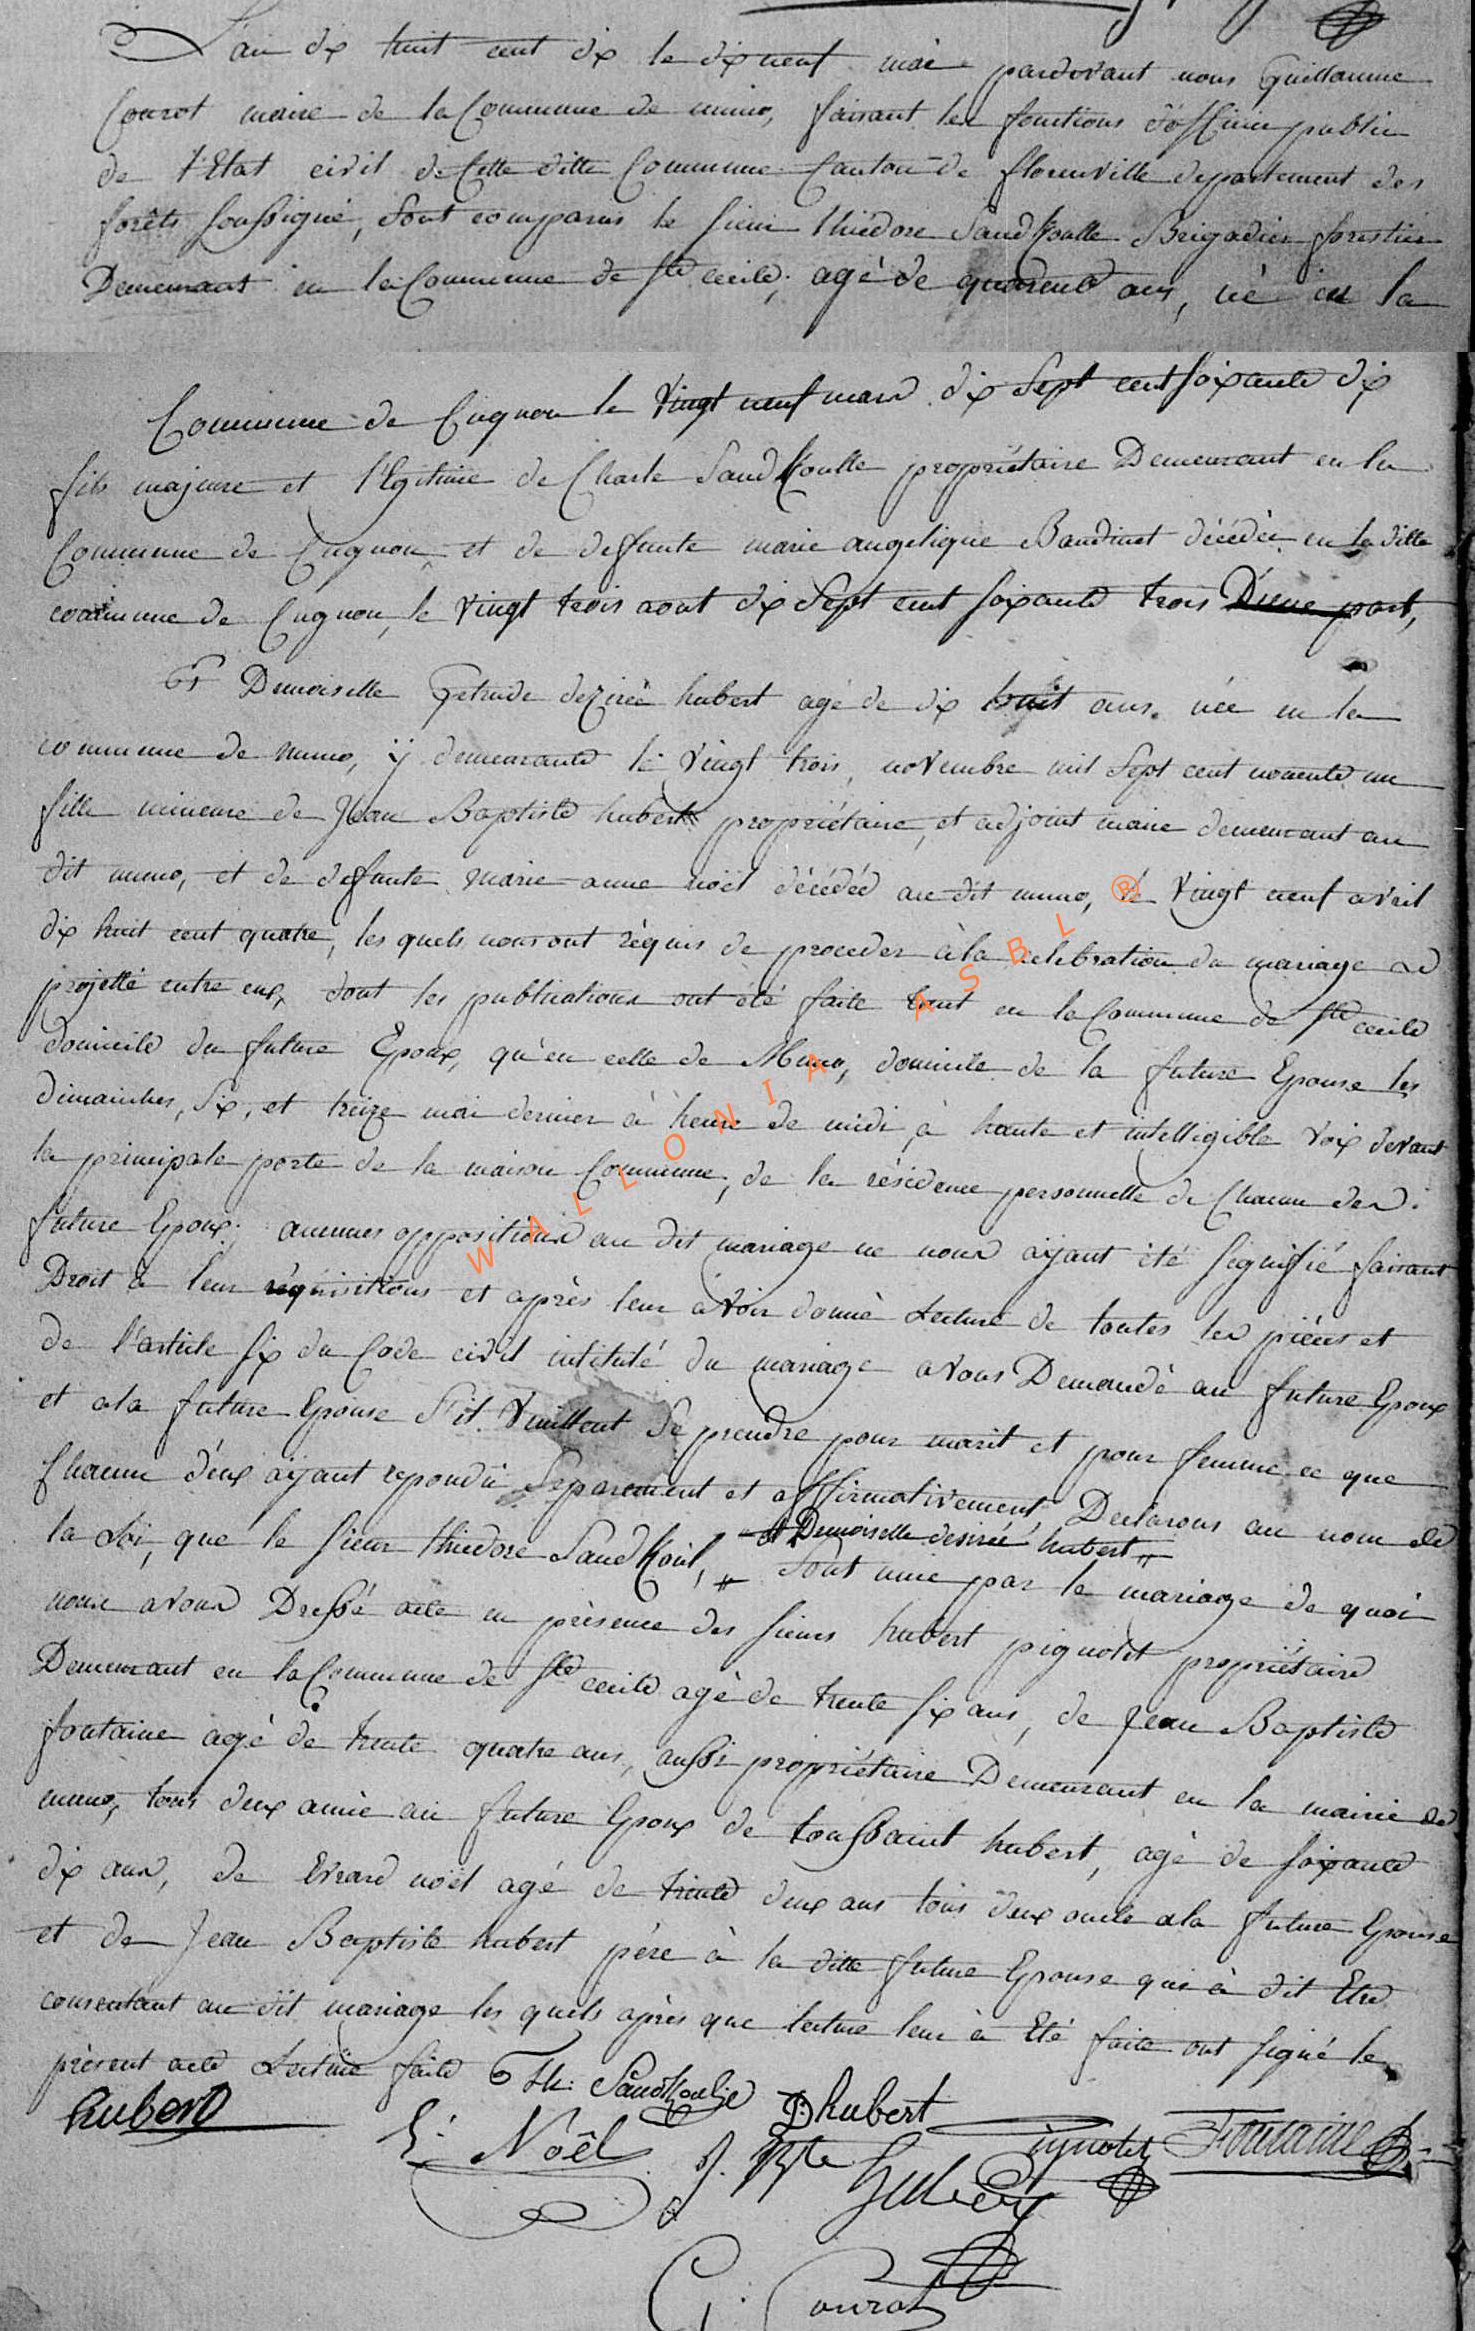 L'an dix huit cent dix le dix neuf mai pardevant nous Guillaume
Courot maire de la Commune de muno, faisant les fonctions d'officier public
de l'Etat civil de Cette ditte Commune Canton de florenville departement des
forêts soussigné, Sont comparus le sieur thiédore Sandkoulle Brigadier forestier
Demeurant en la Commune de Ste cecile, agé de quarente ans, né en la
Commune de Cugnon le vingt neuf mars dix Sept cent soixante dix
fils majeure et l'Egitime de Charle Sandkoulle propriétaire Demeurant en la
Commune de Cugnon et de deffunte marie angelique Baudinet décédée en la ditte
commune de Cugnon, le vingt trois aout dix Sept cent soixante trois D'une part,
Et Demoiselle Getrude dezirée hubert agé de dix huit ans, née en la
commune de muno, ÿ demeurante le vingt trois novembre mil Sept cent nonente un
fille mineure de Jean Baptiste hubert propriétaire, et adjoint maire demeurant au
dit muno, et de deffunte marie anne noël décédéé au dit muno, le vingt neuf avril
dix huit cent quatre, les quels nous ont réquis de proceder à la celebration du mariage
projetté entre eux, dont les publications ont été faite tant en la Commune de Ste cecile
domicile du future Epoux, qu'en celle de Muno, domicile de la future Epouse les
dimanches, Six, et treize mai dernier à heure de midi à haute et intelligible voix devant
la principale porte de la maison Commune, de la résidence personnelle de Chacun des
future Epoux; aucunes oppositions au dit mariage ne nous aÿant été signifié faisant
Droit à leur réquisitions et après leur avoir donné Lecture de toutes les piéces et
de l'article six du Code civil intitulé du mariage avons Demandé au future Epoux
et a la future Epouse S'il veuillent Se prendre pour marit et pour femme ce que
Chacun d'eux aÿant repondu Separement et affirmativement, Declarons au nom de
la Loi, que le sieur thiedore Sandkoul, et Demoiselle desirée hubert sont unie par le mariage de quoi
nous avons Dressé acte en présence des sieurs hubert pignolet propriétaire
Demeurant en la Commune de Ste cecile agé de trente six ans, de Jean Baptiste
fontaine agé de trente quatre ans, aussi propriétaire Demeurant en la mairie de
muno, tous deux amie au future Epoux de toussaint hubert, agé de soixante
dix ans, de Erard noël agé de trente deux ans tous deux oncle a la future Epouse
et de Jean Baptiste hubert pére à la ditte future Epouse qui à dit Etre
consentant au dit mariage les quels après que lecture leur à Eté faite ont signé le
présent acte Lecture faite Th: Sandkoulle
hubert D: hubert
E: Noël J. Bte hubert pignolet Fontaine
G: Courot
WALLONIA ASBL ®